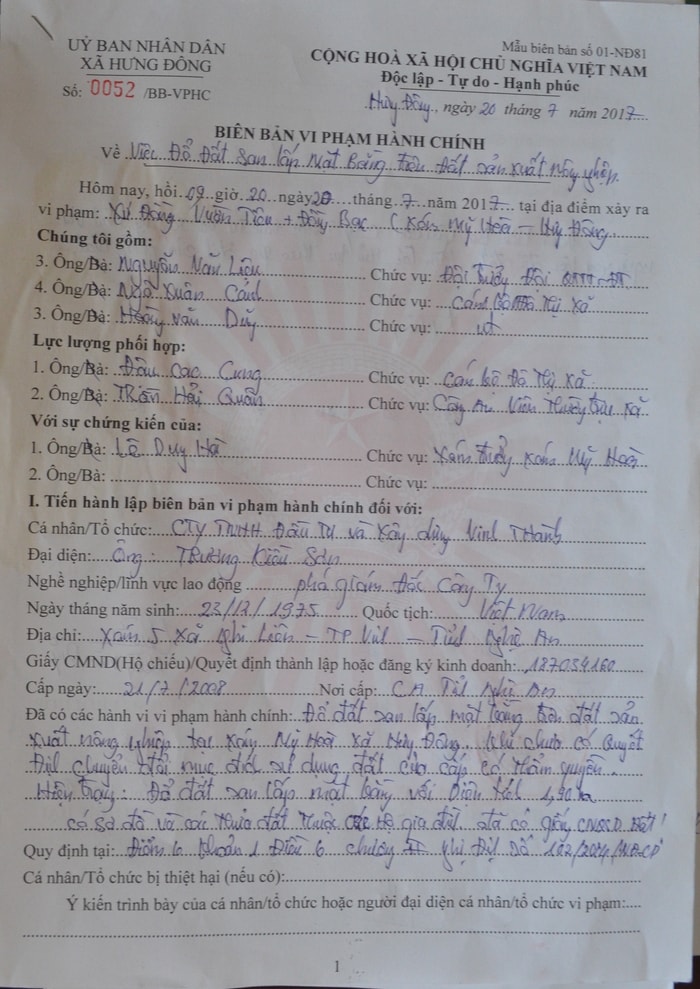 Mẫu biên bản số 01-NĐ81
UỶ BAN NHÂN DÂN
XÃ HƯNG ĐÔNG
Số: 0052 /BB-VPHC
CỘNG HOÀ XÃ HỘI CHỦ NGHĨA VIỆT NAM
Độc lập - Tự do - Hạnh phúc
Hưng Đông, ngày 20 tháng 7 năm 2017
BIÊN BẢN VI PHẠM HÀNH CHÍNH
Về Việc Đổ Đất San lấp Mặt Bằng trên Đất sản xuất Nông nghiệp
Hôm nay, hồi 09 giờ 20 ngày 20 tháng 7 năm 2017 tại địa điểm xảy ra
vi phạm: Xứ Đồng Vườn Tiêu + Đồng Bạc (Xóm Mỹ Hoà - Hưng Đông
Chúng tôi gồm:
3. Ông/Bà: Nguyễn Văn Liệu Chức vụ: Đội Trưởng Đội QTTT-ĐT
4. Ông/Bà: Ngô Xuân Cảnh Chức vụ: Cán Bộ Đô Thị Xã
3. Ông/Bà: Hoàng Văn Duy Chức vụ: nt
Lực lượng phối hợp:
1. Ông/Bà: Cao Cung Chức vụ: Cán bộ Đô Thị Xã
2. Ông/Bà: Trần Hải Quân Chức vụ: Công An Viên Thường trực Xã
Với sự chứng kiến của:
1. Ông/Bà: Lê Duy Hà Chức vụ: Xóm trưởng Xóm Mỹ Hoà
2. Ông/Bà: Chức vụ:
I. Tiến hành lập biên bản vi phạm hành chính đối với:
Cá nhân/Tổ chức: CTY TNHH Đầu Tư và Xây dựng Vinh Thành
Đại diện: Ông: Trương Kiều Sơn
Nghề nghiệp/lĩnh vực lao động phó giám đốc Công Ty
Ngày tháng năm sinh: 23/12/1975 Quốc tịch: Việt Nam
Địa chỉ: Xóm 5 Xã Nghi Liên - TP Vinh - Tỉnh Nghệ An
Giấy CMND(Hộ chiếu)/Quyết định thành lập hoặc đăng ký kinh doanh: 187034160
Cấp ngày: 21/7/2008 Nơi cấp: C.A Tỉnh Nghệ An
Đã có các hành vi vi phạm hành chính: Đổ đất san lấp mặt bằng trên đất sản
xuất nông nghiệp tại Xóm Mỹ Hoà Xã Hưng Đông. Khi chưa có Quyết
Định chuyển đổi mục đích sử dụng đất của cấp có thẩm quyền.
Hiện trạng: Đổ đất san lấp mặt bằng với Diện tích 1,90 ha
có sơ đồ và các thửa đất thuộc các hộ gia đình đã có giấy CNQSD đất!
Quy định tại: Điểm Khoản 1 Điều 6 chương II nghị Định số 102/2014/NĐ-CP
Cá nhân/Tổ chức bị thiệt hại (nếu có):
Ý kiến trình bày của cá nhân/tổ chức hoặc người đại diện cá nhân/tổ chức vi phạm:
1